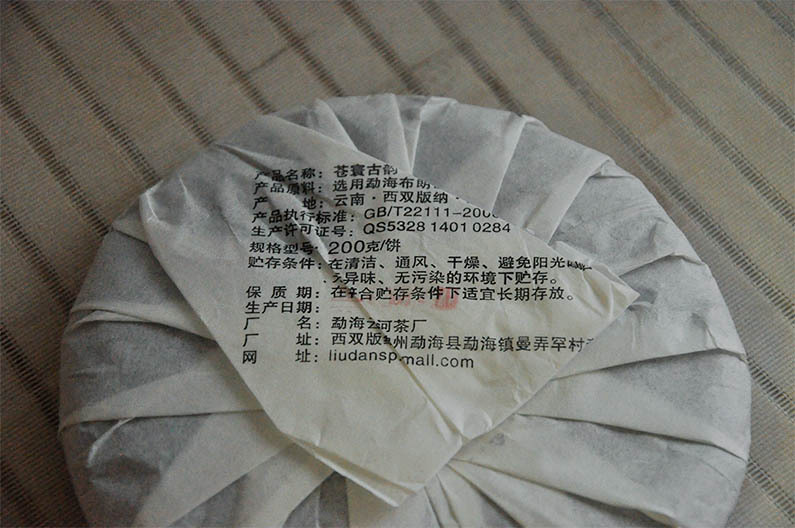 产品名称：苍寰古韵
产品原料：选用勐海布朗
产　　地：云南·西双版纳·
产品执行标准：GB/T22111-200
生产许可证号：QS5328 1401 0284
规格型号：200克/饼
贮存条件：在清洁、通风、干燥、避免阳光
异味、无污染的环境下贮存。
保 质 期：在符合贮存条件下适宜长期存放。
生产日期：
厂　　名：勐海 河茶厂
厂　　址：西双版 州勐海县勐海镇曼弄罕村
网　　址：liudansp.mall.com